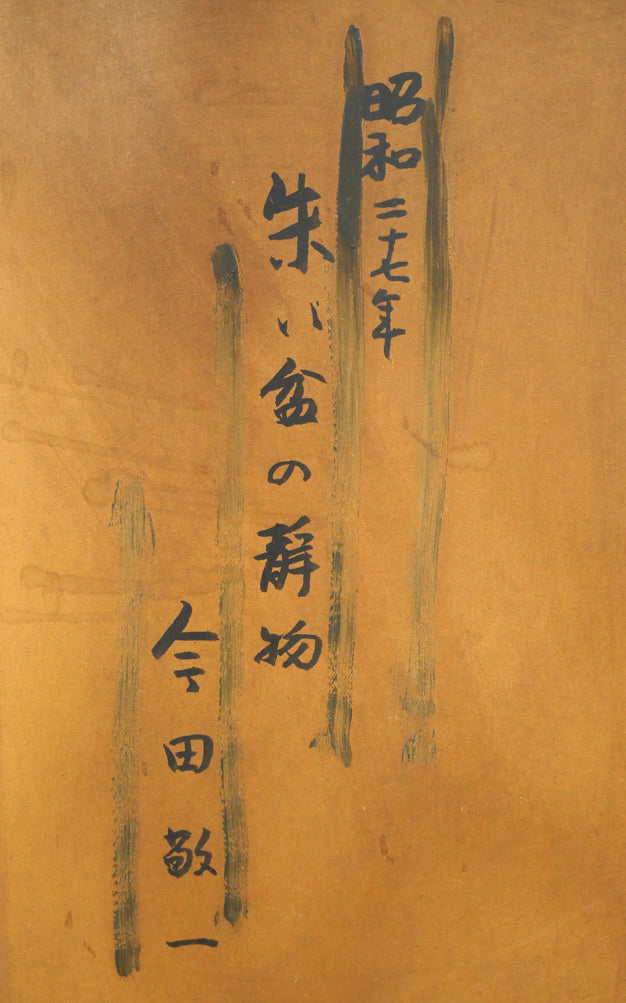 昭和二十七年
朱い盆の静物
今田敬一